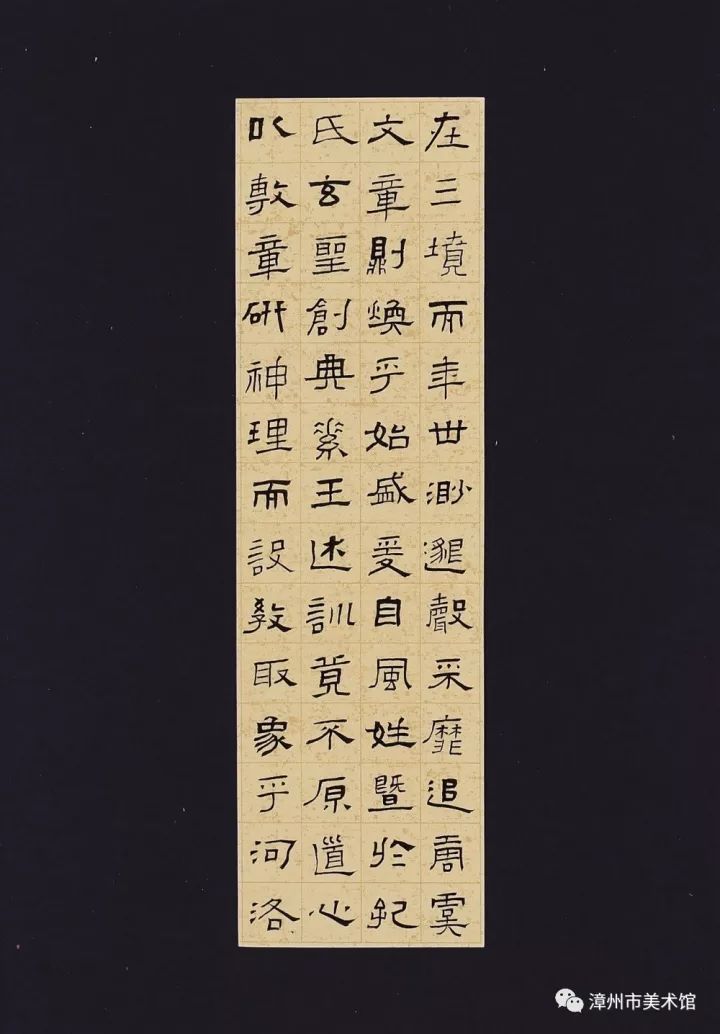 在三境而年世渺邈聲采靡追唐虞
文章則煥乎始盛爰自風姓暨於孔
氏玄聖創典素王述訓莫不原道心
以敷章研神理而設教取象乎河洛
漳州市美术馆